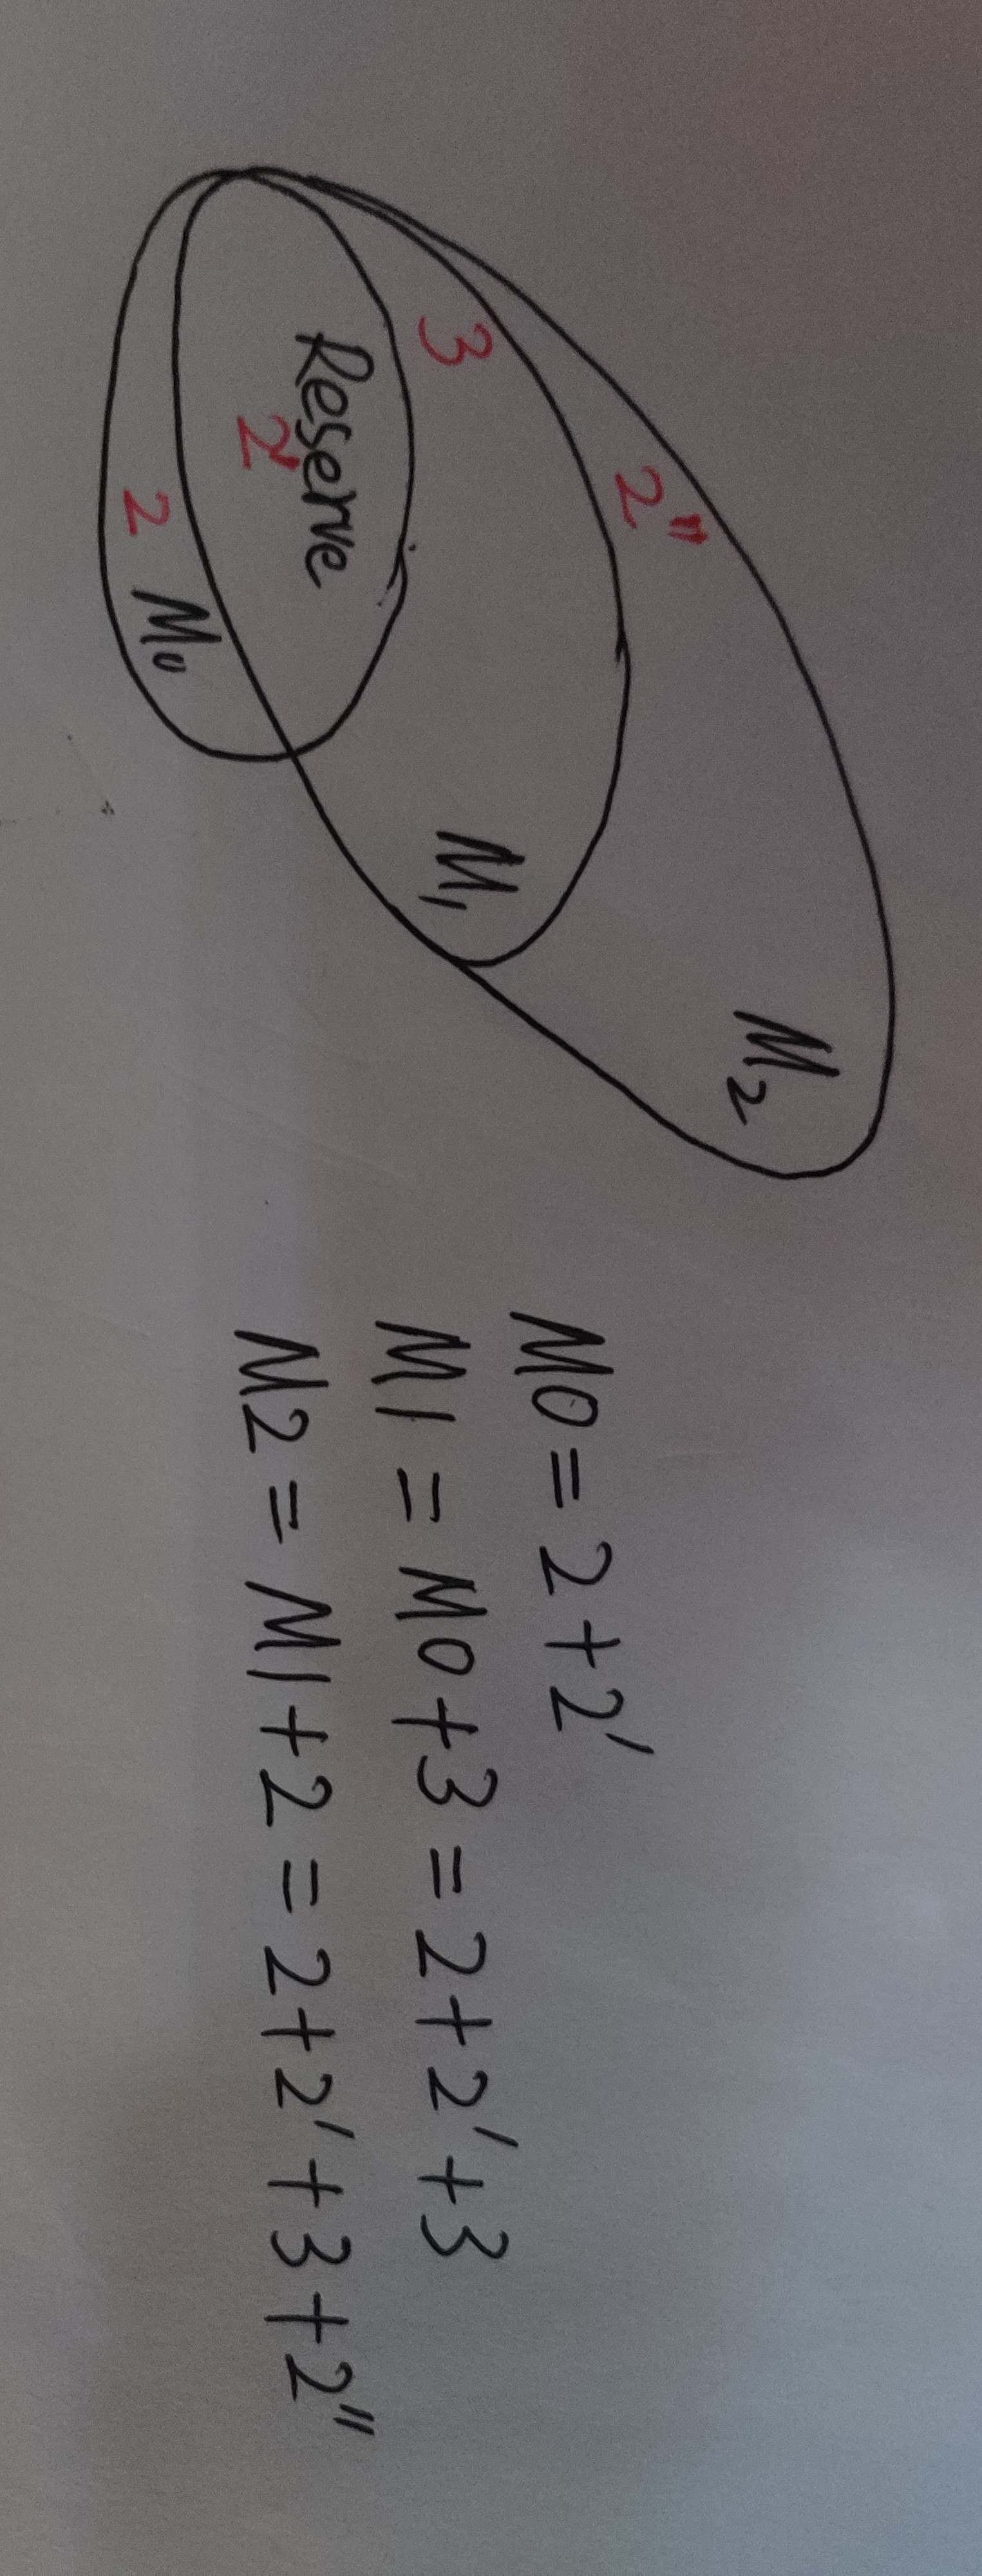 M₂
2''
M₁
3
Reserve
2'
M₀
2
M0 = 2+2'
M1 = M0+3 = 2+2'+3
M2 = M1+2 = 2+2'+3+2''